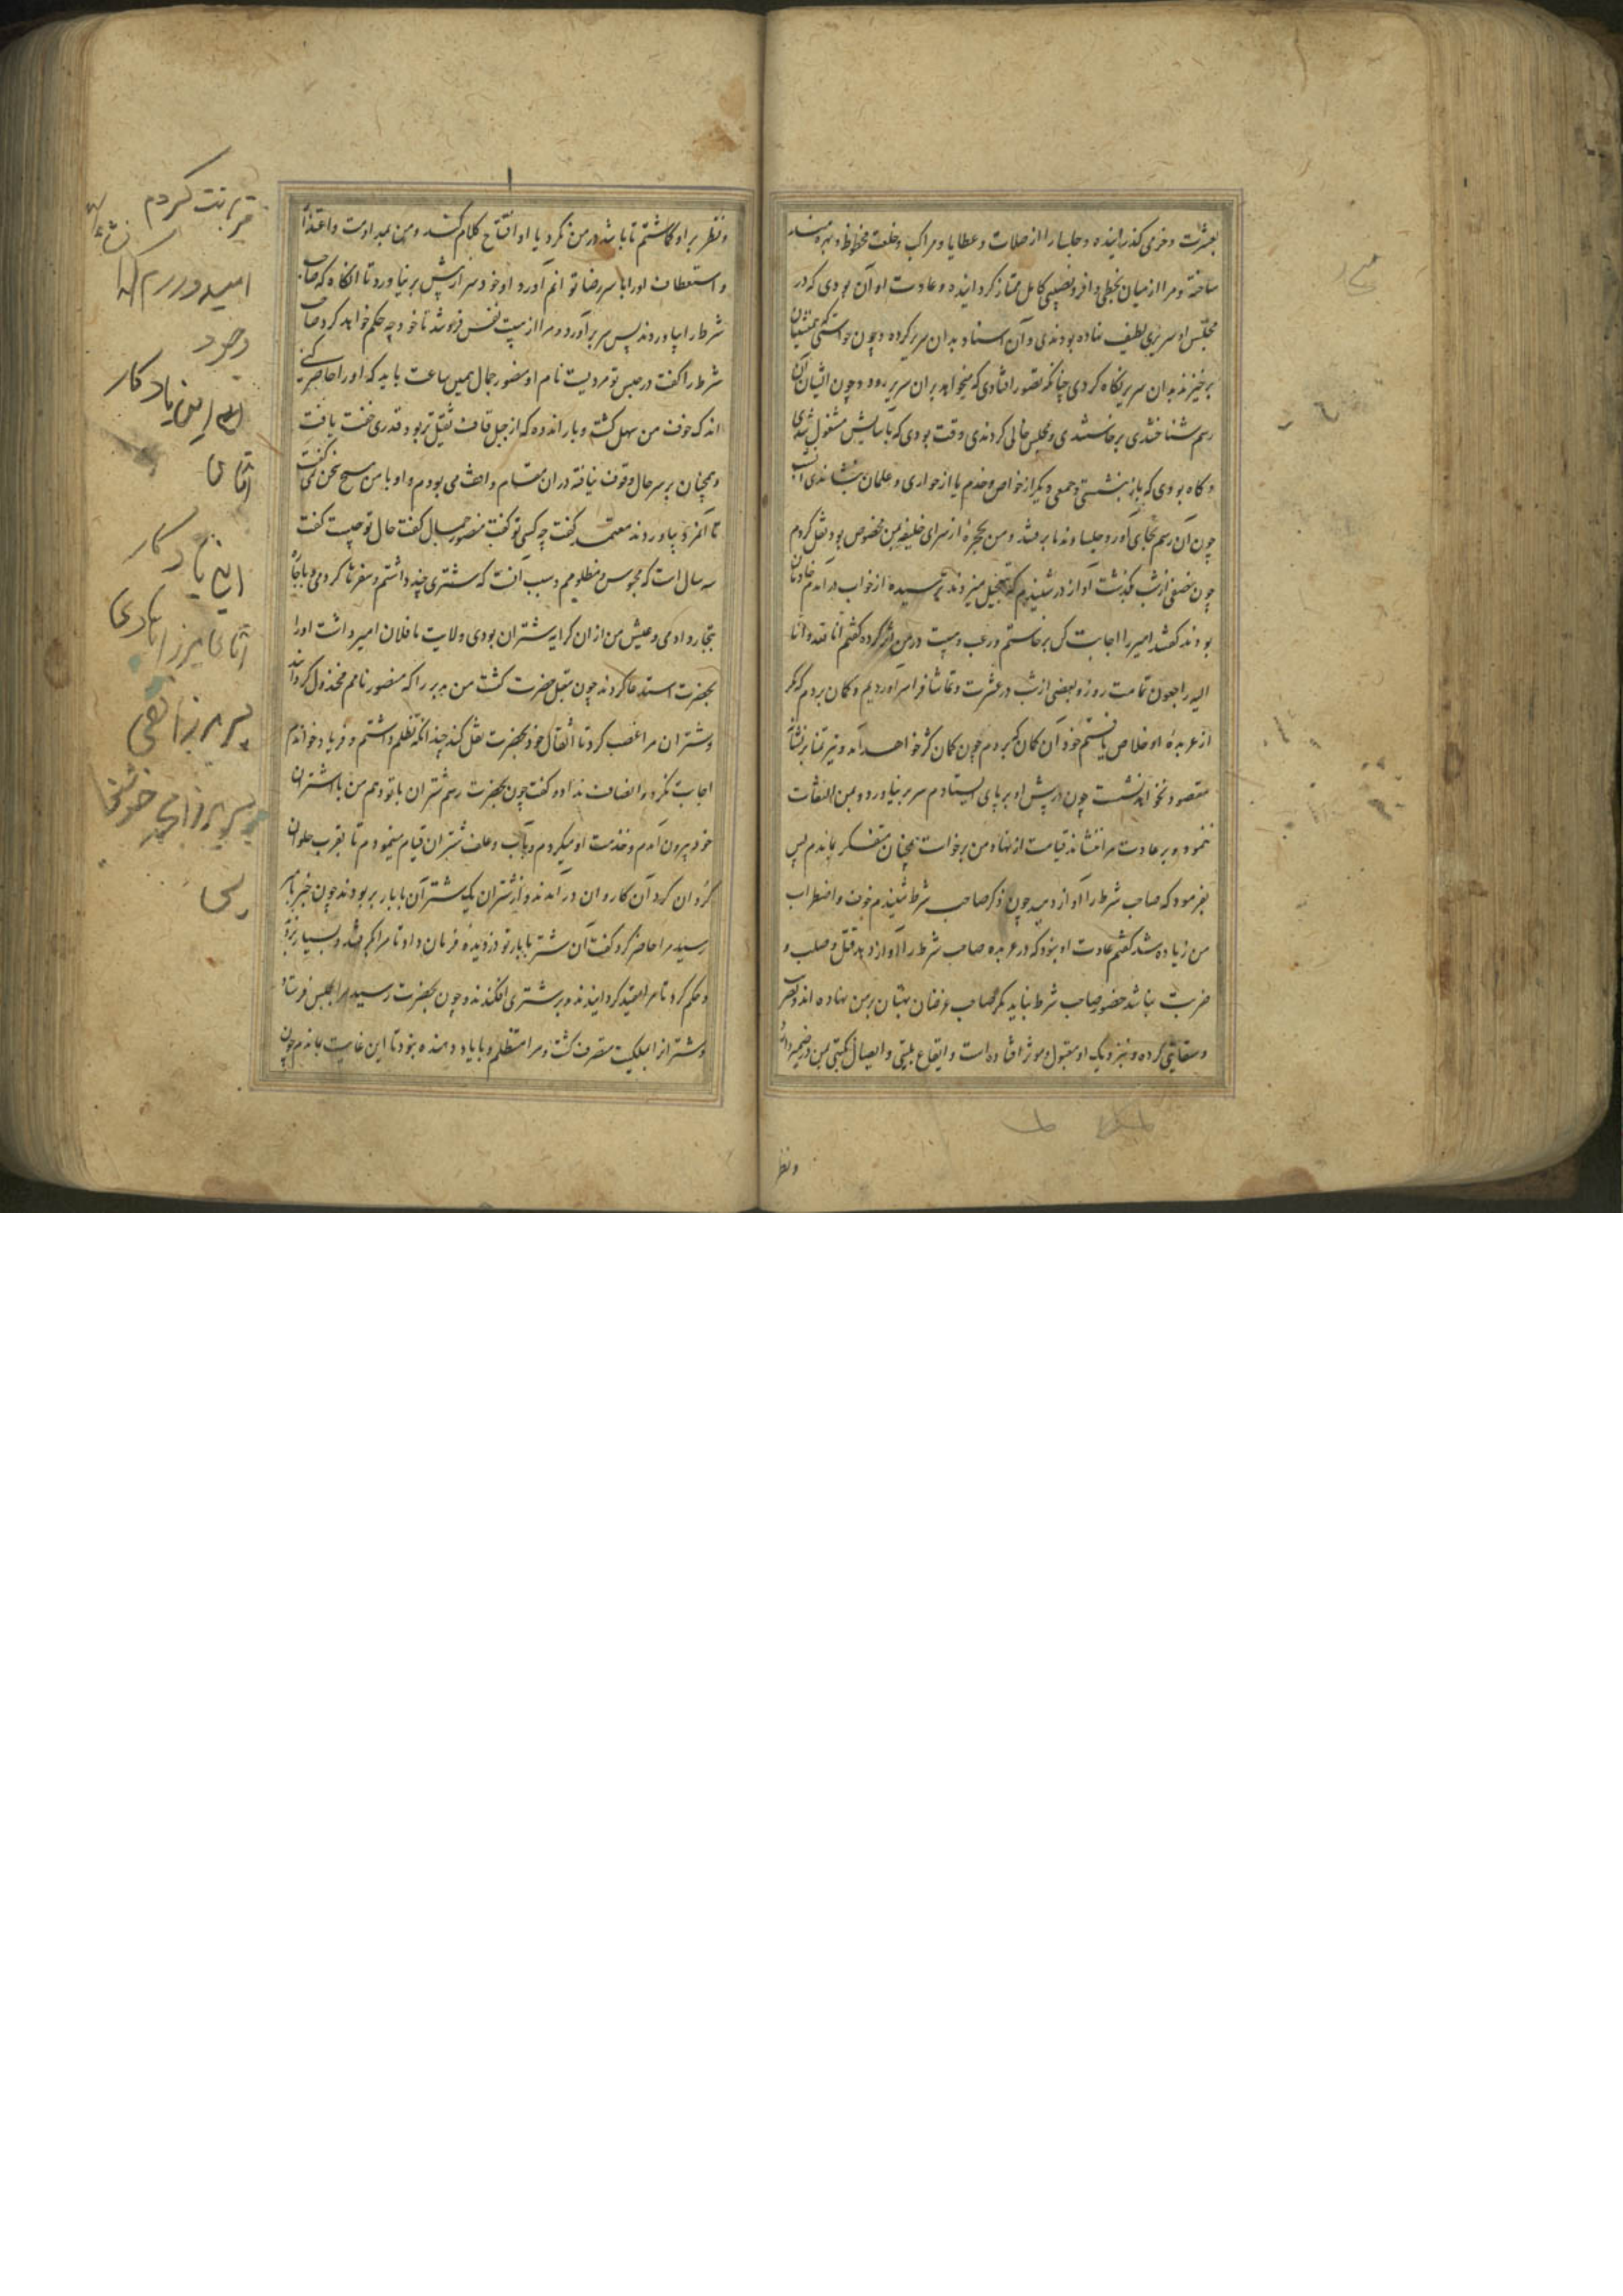 بعشرت و خرمی گذرانیده و جلسا را از صلات و عطایا و مراکب و خلعت محظوظ و بهره‌مند
ساخته و مرا از میان بحظی وافر و نصیبی کامل ممتاز گردانیده و عادت او آن بودی که در
مجلس او سریری لطیف نهاده بودندی و آن استناد بدان سریر کرده و چون خواستی که همنشینان
برخیزند بدان سریر نگاه کردی چنانکه تصور افتادی که میخواهد بران سریر رود و چون ایشان آن
رسم شناختندی برخاستندی و مجلس خالی کردندی وقت بودی که بآسایش مشغول شدی
و گاه بودی که باز بنشستی و جمعی دیگر از خواص و خدم یا از جواری و غلمان بنشاندی
چون آن رسم بجای آورد جلسا و ندما برفتند و من بحجره از سرای خلیفه بمن مخصوص بود نقل کردم
چون نصفی از شب گذشت آواز در شنیدم که بتعجیل میزدند ترسیده از خواب درآمدم خادمان
بودند گفتند امیر را اجابت کن برخاستم و رعب و هیبت در من اثر کرده گفتم انا لله و انا
الیه راجعون تمامت روز و بعضی از شب در عشرت و تماشا فراسر آوردیم و گمان بردم که مگر
از عربده او خلاص یافتم خود آن گمان که بردم چون کمان کژ خواهد آمد و تیر تمنا بر نشانه
مقصود نخواهد نشست چون در پیش او برپای ایستادم سر بر نیاورد و بمن التفات
ننمود و بر عادت مرا ننشاند قیامت از نهاد من برخواست همچنان متفکر بماندم پس
بفرمود که صاحب شرط را آواز دهید چون ذکر صاحب شرط شنیدم خوف و اضطراب
من زیاده شد گفتم عادت او نبود که در عربده صاحب شرط را آواز دهد قتل و صلب و
ضربت نباشد حضور صاحب شرط نباید مگر صاحب غرضان بهتان بر من نهاده اند و قصد
و سعایتی کرده و بنزدیک او مقبول و موثر افتاده است و ایقاع بلیتی و ایصال نکبتی بمن در ضمیر دارد
و نظر
و نظر بر او گماشتم تا باشد در من نگرد یا او افتتاح کلام کند و من بمداومت و اعتذار
و استعطاف او را با سر رضا توانم آورد او خود سر از پیش بر نیاورد تا آنگاه که صاحب
شرط را بیاوردند پس سر برآورد و مرا از هیبت نفس فرو شد تا خود چه حکم خواهد کرد صاحب
شرط را گفت در حبس تو مردیست نام او منصور جمال همین ساعت باید که او را حاضر کنی
اندک خوف من سهل گشت و بار اندوه که از جبل قاف ثقیل‌تر بود قدری خفت یافت
و همچنان بر سر حال وقوف نیافته در آن مقام واقف می بودم و او با من هیچ سخن نمی گفت
تا آنمرد بیاوردند معتمد گفت چه کسی تو گفت منصور جمال گفت حال تو چیست گفت
سه سال است که محبوس و مظلومم و سبب آنست که شتری چند داشتم و سفرها کردمی و باجاره
بتجار دادمی و عیش من از آن کرایه شتران بودی ولایت ما فلان امیر داشت او را
بحضرت استدعا کردند چون مقبل حضرت گشت من مدبر را که منصور نامم مخذول گردانید
و شتران مرا غصب کرد تا اثقال خود بحضرت نقل کند چندانکه تظلم داشتم و فریاد خواندم
اجابت نکرد و انصاف نداد و گفت چون بحضرت رسم شتران باتو دهم من با شتران
خود بیرون آمدم و خدمت او میکردم و بآب و علف شتران قیام مینمودم تا بقرب حلوان
کردان گرد آن کاروان درآمدند و از شتران یک شتر آن با بار بربودند چون خبر بامیر
رسید مرا حاضر کرد گفت آن شتر با بار تو دزدیده فرمان داد تا مرا بگرفتند و بسیار بزدند
و حکم کرد تا مرا مقید گردانیدند و بر شتری افکندند و چون بحضرت رسید مرا بحبس فرستاد
و شتر از املکیت متصرف گشت و مرا متظلم و با یاد دهنده نبود تا این غایت بماندم چون
قربانت گردم
امیدوارم که
وجود
این یادکار
آقای
این یادکار
آقای میرزا هادی
پسر میرزا تقی